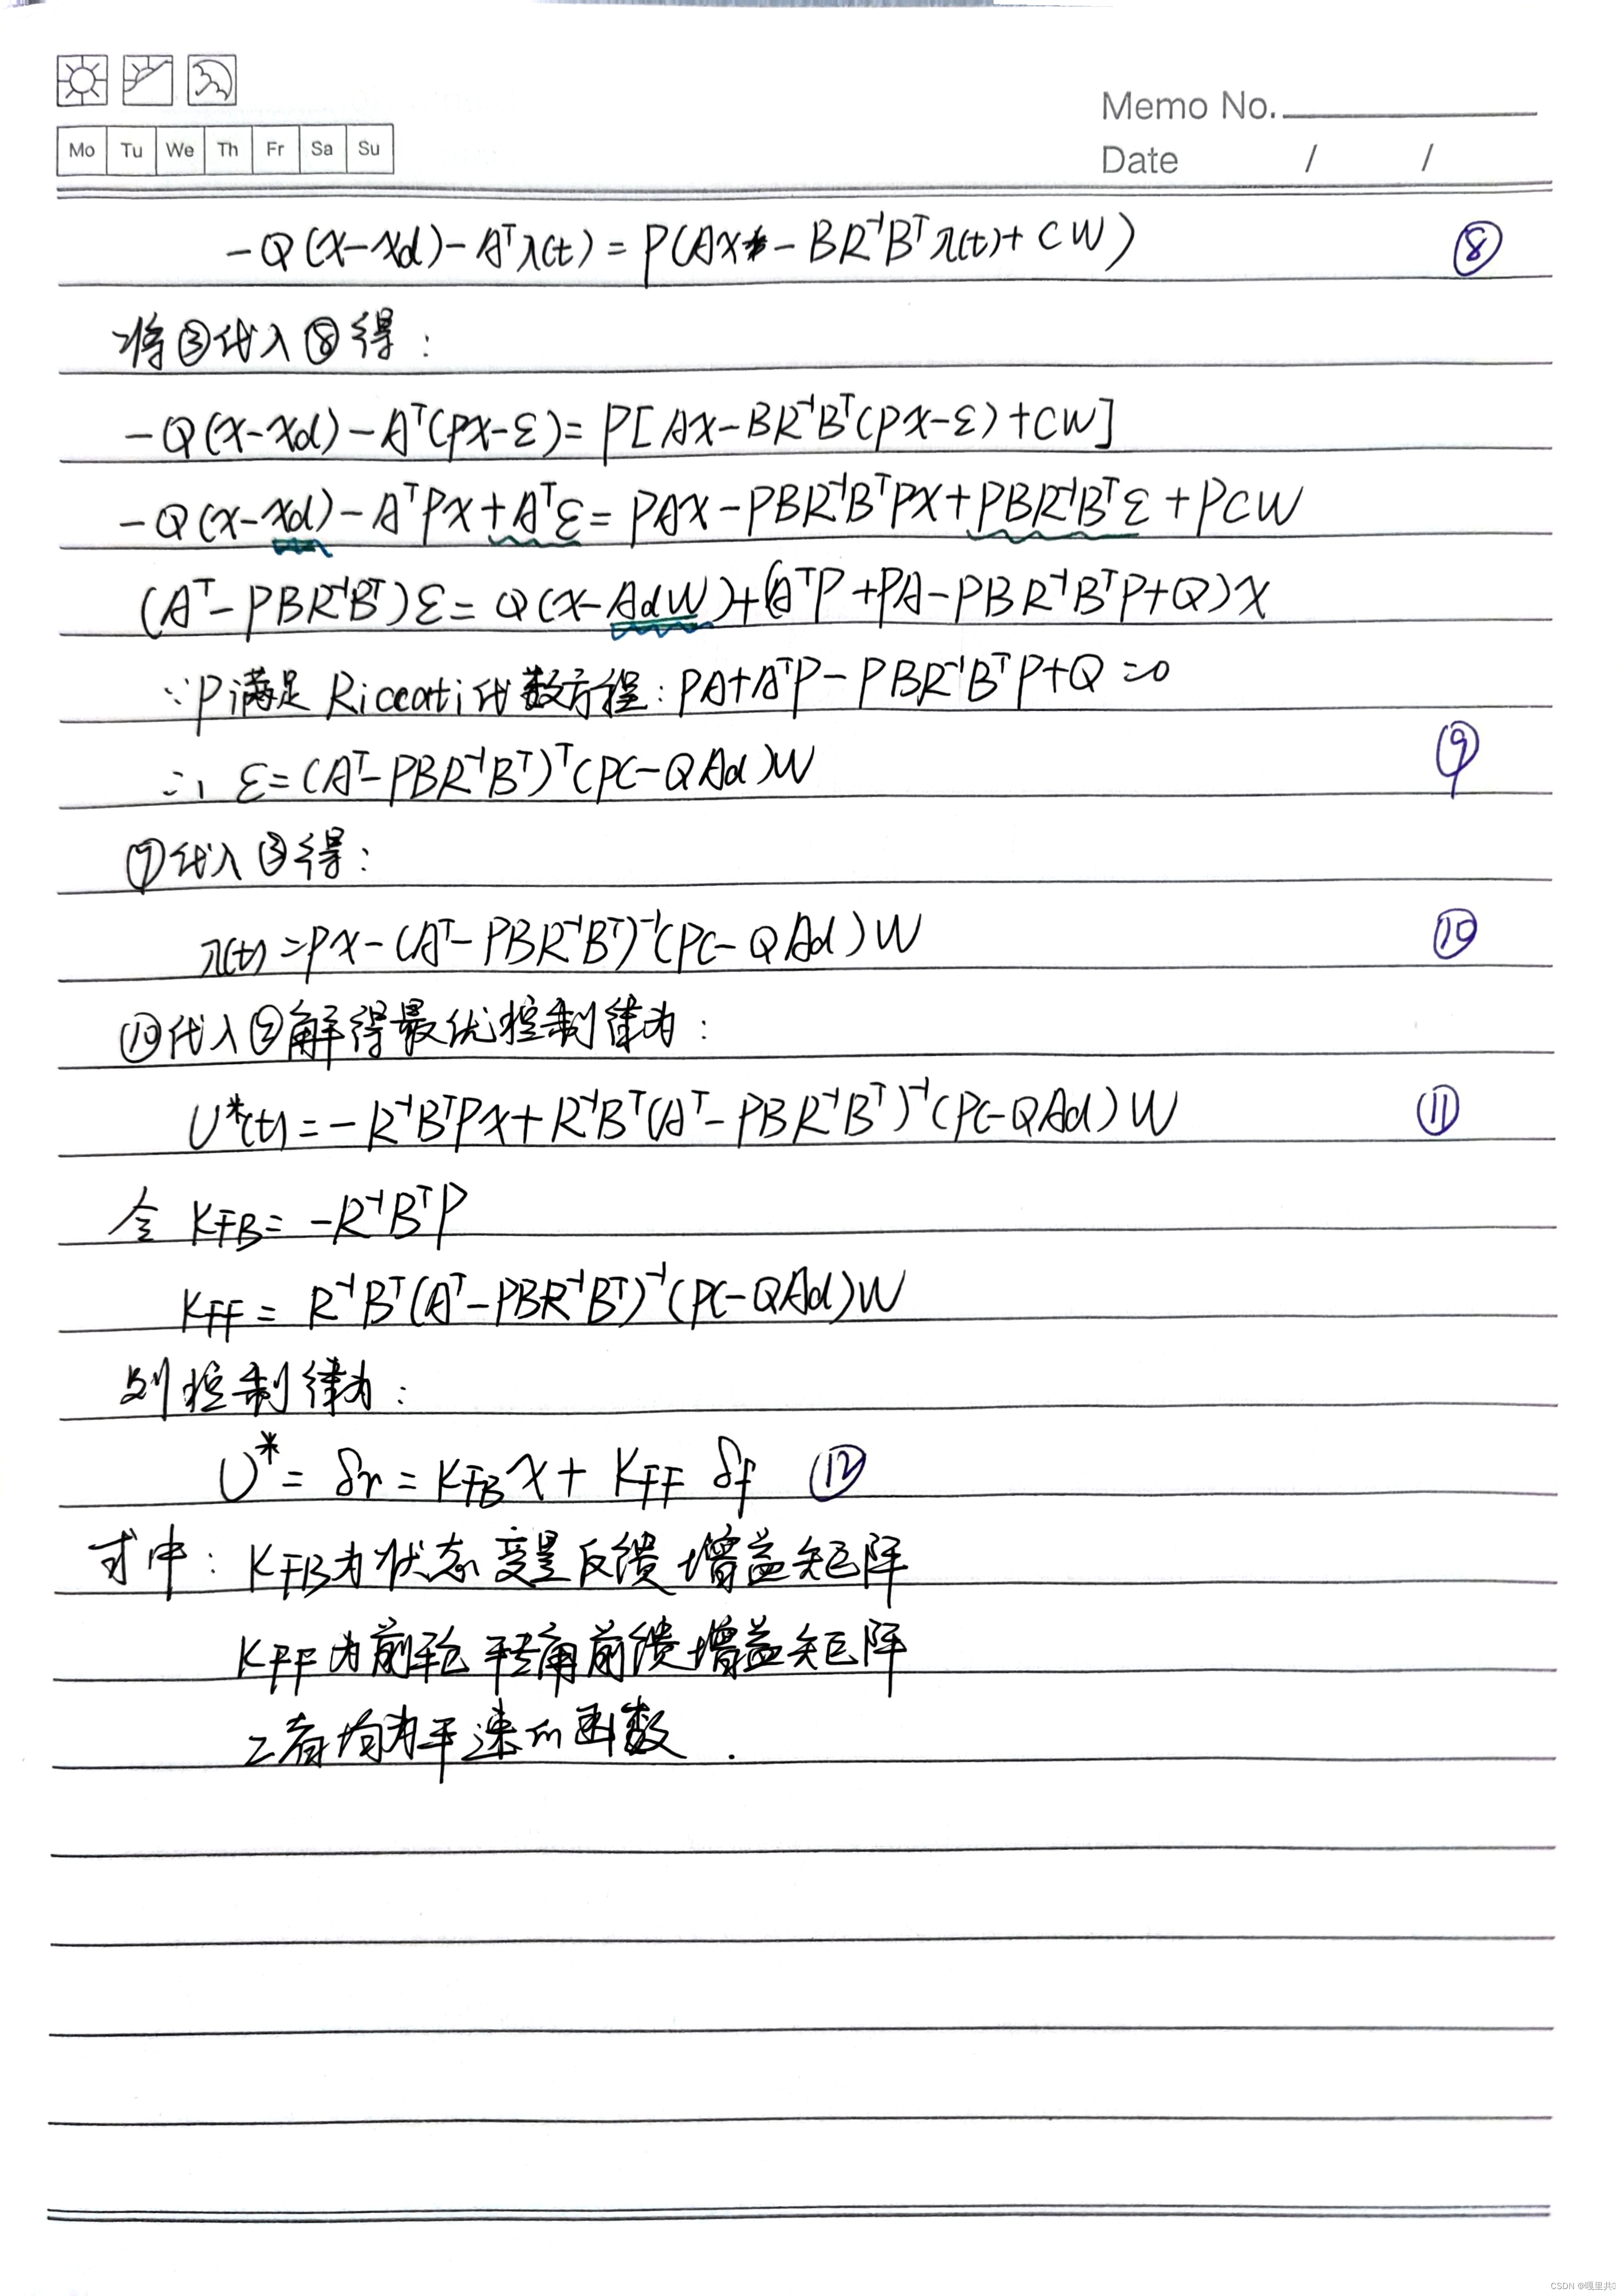 Mo Tu We Th Fr Sa Su
Memo No.
Date / /
-Q(X-Xd)-AᵀλCt)=P(AX-BR⁻¹Bᵀλ(t)+CW) ⑧
将③代入⑧得:
-Q(X-Xd)-Aᵀ(PX-ε)=P[AX-BR⁻¹Bᵀ(PX-ε)+CW]
-Q(X-Xd)-AᵀPX+Aᵀε=PAX-PBR⁻¹BᵀPX+PBR⁻¹Bᵀε+PCW
(Aᵀ-PBR⁻¹Bᵀ)ε=Q(X-AdW)+(AᵀP+PA-PBR⁻¹BᵀP+Q)X
∵P满足Riccati代数方程:PA+AᵀP-PBR⁻¹BᵀP+Q=0
∴, ε=(Aᵀ-PBR⁻¹Bᵀ)ᵀ(PC-QAd)W ⑨
⑨代入③得:
λ(t)=PX-(Aᵀ-PBR⁻¹Bᵀ)⁻¹(PC-QAd)W ⑩
⑩代入②解得最优控制律为:
U*(t)=-R⁻¹BᵀPX+R⁻¹Bᵀ(Aᵀ-PBR⁻¹Bᵀ)⁻¹(PC-QAd)W ⑪
令 KFB=-R⁻¹BᵀP
KFF=R⁻¹Bᵀ(Aᵀ-PBR⁻¹Bᵀ)⁻¹(PC-QAd)W
则控制律为:
U*=δr=KFBX+KFFδf ⑫
式中:KFB为状态变量反馈增益矩阵
KFF为前轮转角前馈增益矩阵
二者均为车速的函数.
CSDN @嘎里共